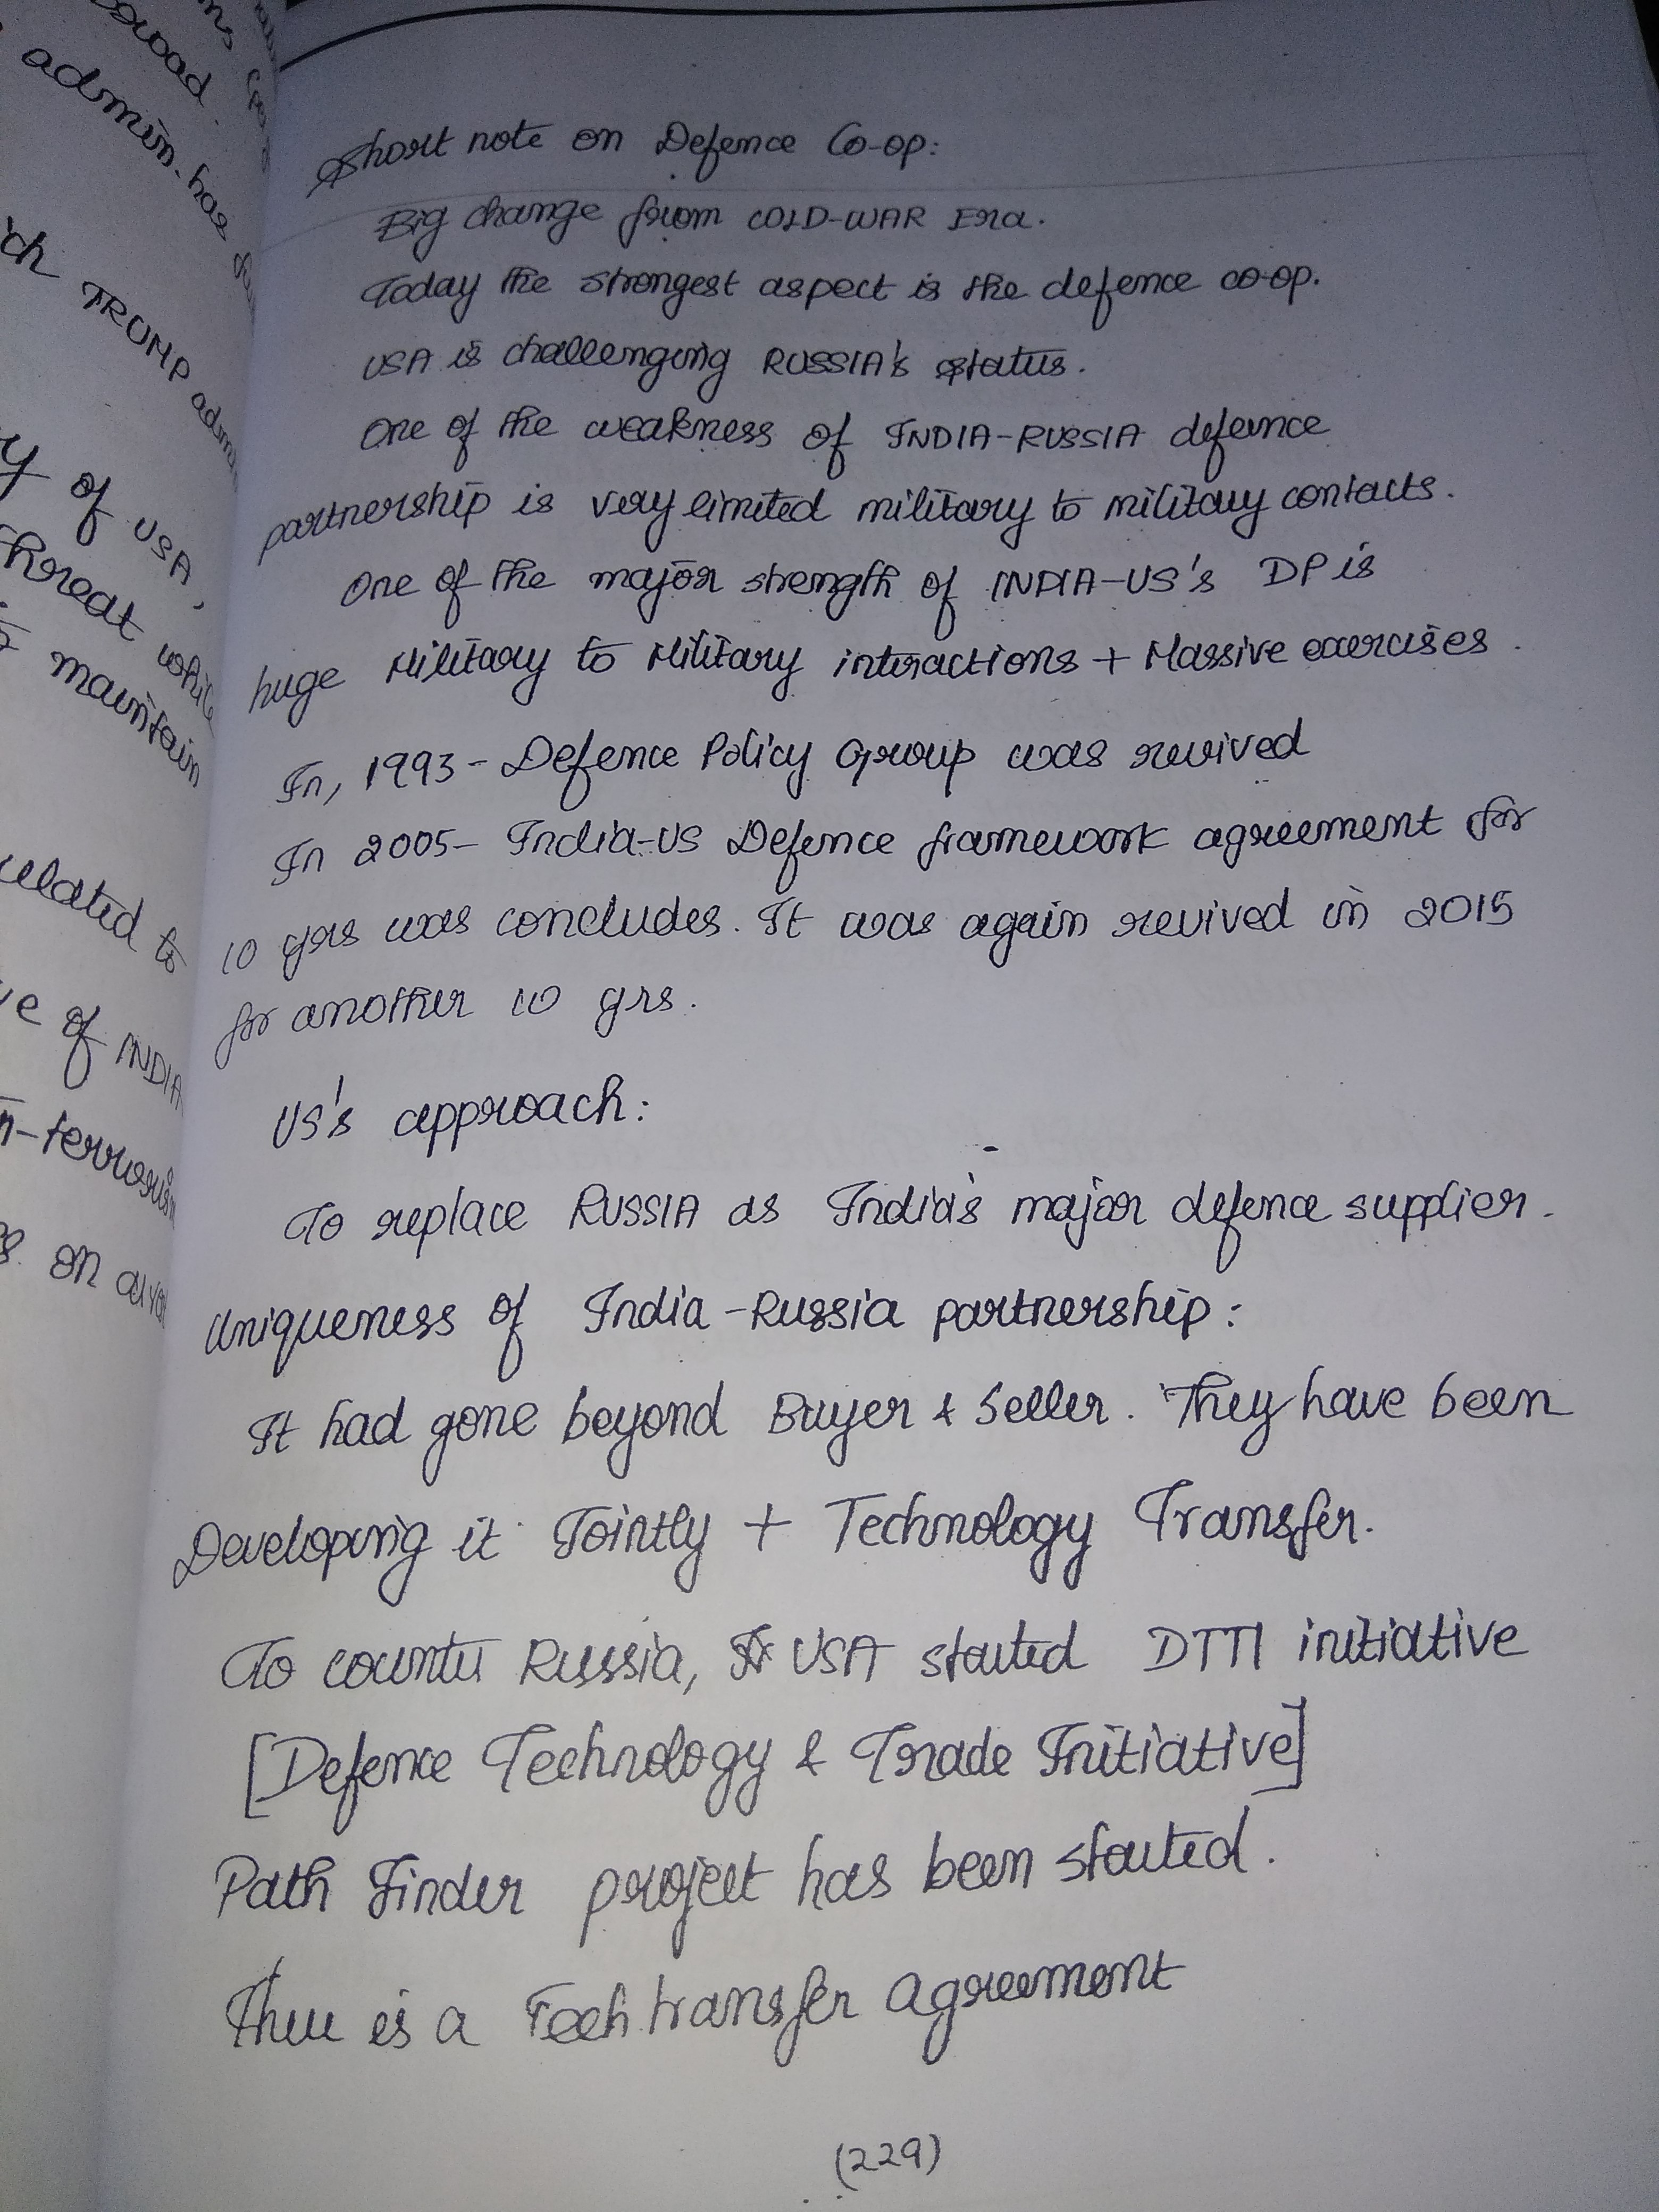 swood.
admin. has
ch TRUMP admin
y of USA,
threat while
maintain
related to
ve of INDIA
n-terrorism
on
Short note on Defence Co-op:
Big change from COLD-WAR Era.
Today the strongest aspect is the defence co-op.
USA is challenging RUSSIA's status.
One of the weakness of INDIA-RUSSIA defence
partnership is very limited military to military contacts.
One of the major strength of INDIA-US's DP is
huge Military to Military interactions + Massive exercises.
In, 1993 - Defence Policy Group was revived
In 2005 - India-US Defence framework agreement for
10 yrs was concludes. It was again revived in 2015
for another 10 yrs.
US's approach:
To replace RUSSIA as India's major defence supplier.
Uniqueness of India-Russia partnership:
It had gone beyond Buyer & Seller. They have been
Developing it Jointly + Technology Transfer.
To counter Russia, USA started DTTI initiative
[Defence Technology & Trade Initiative]
Path Finder project has been started.
There is a Tech transfer agreement
(229)